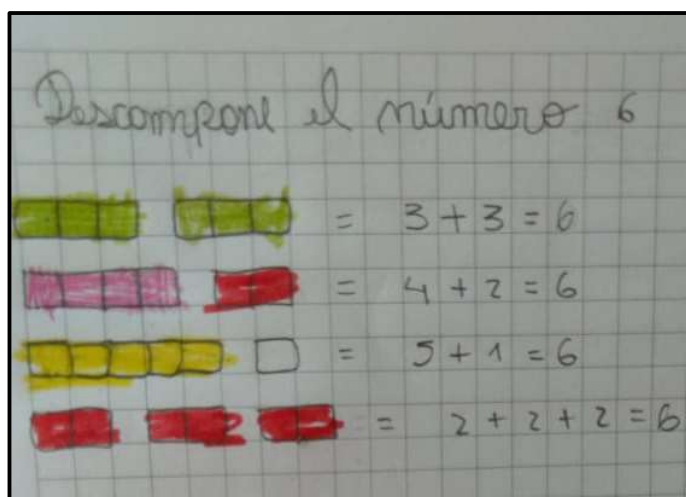 Descompone el número 6
= 3 + 3 = 6
= 4 + 2 = 6
= 5 + 1 = 6
= 2 + 2 + 2 = 6